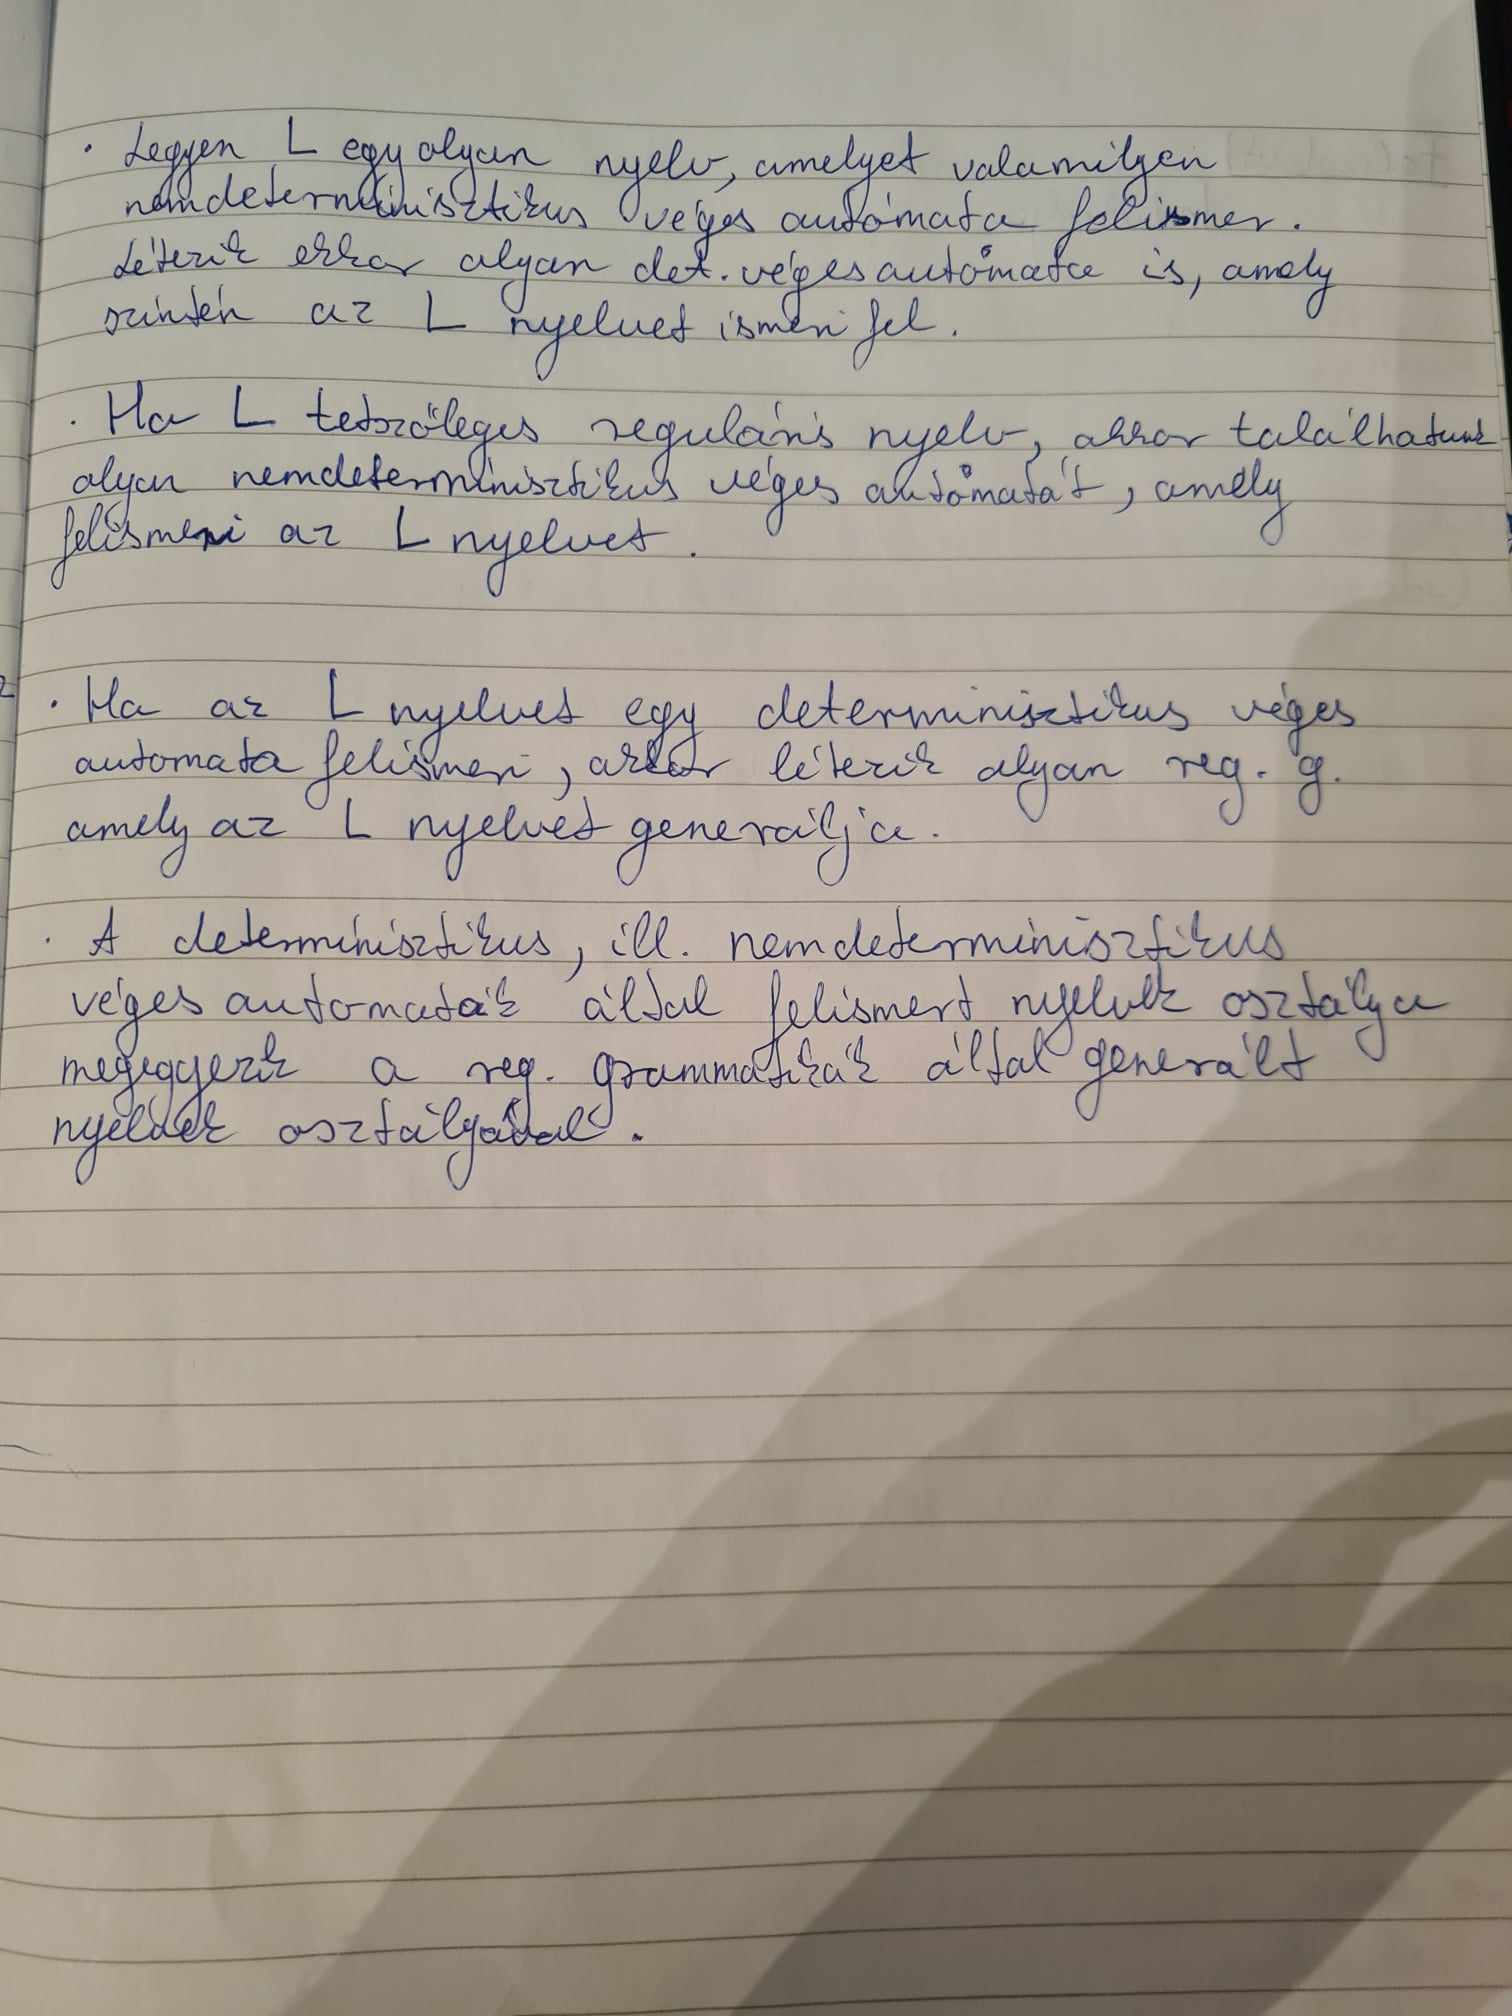 · Legyen L egy olyan nyelv, amelyet valamilyen
nemdeterminisztikus véges autómata felismer.
Létezik ekkor olyan det. véges automata is, amely
szintén az L nyelvet ismeri fel.
· Ha L tetszőleges reguláris nyelv, akkor találhatunk
olyan nemdeterminisztikus véges automatát, amely
felismeri az L nyelvet.
· Ha az L nyelvet egy determinisztikus véges
automata felismeri, akkor létezik olyan reg. g.
amely az L nyelvet generálja.
· A determinisztikus, ill. nemdeterminisztikus
véges automaták által felismert nyelvek osztálya
megegyezik a reg. grammatikák által generált
nyelvek osztályával.